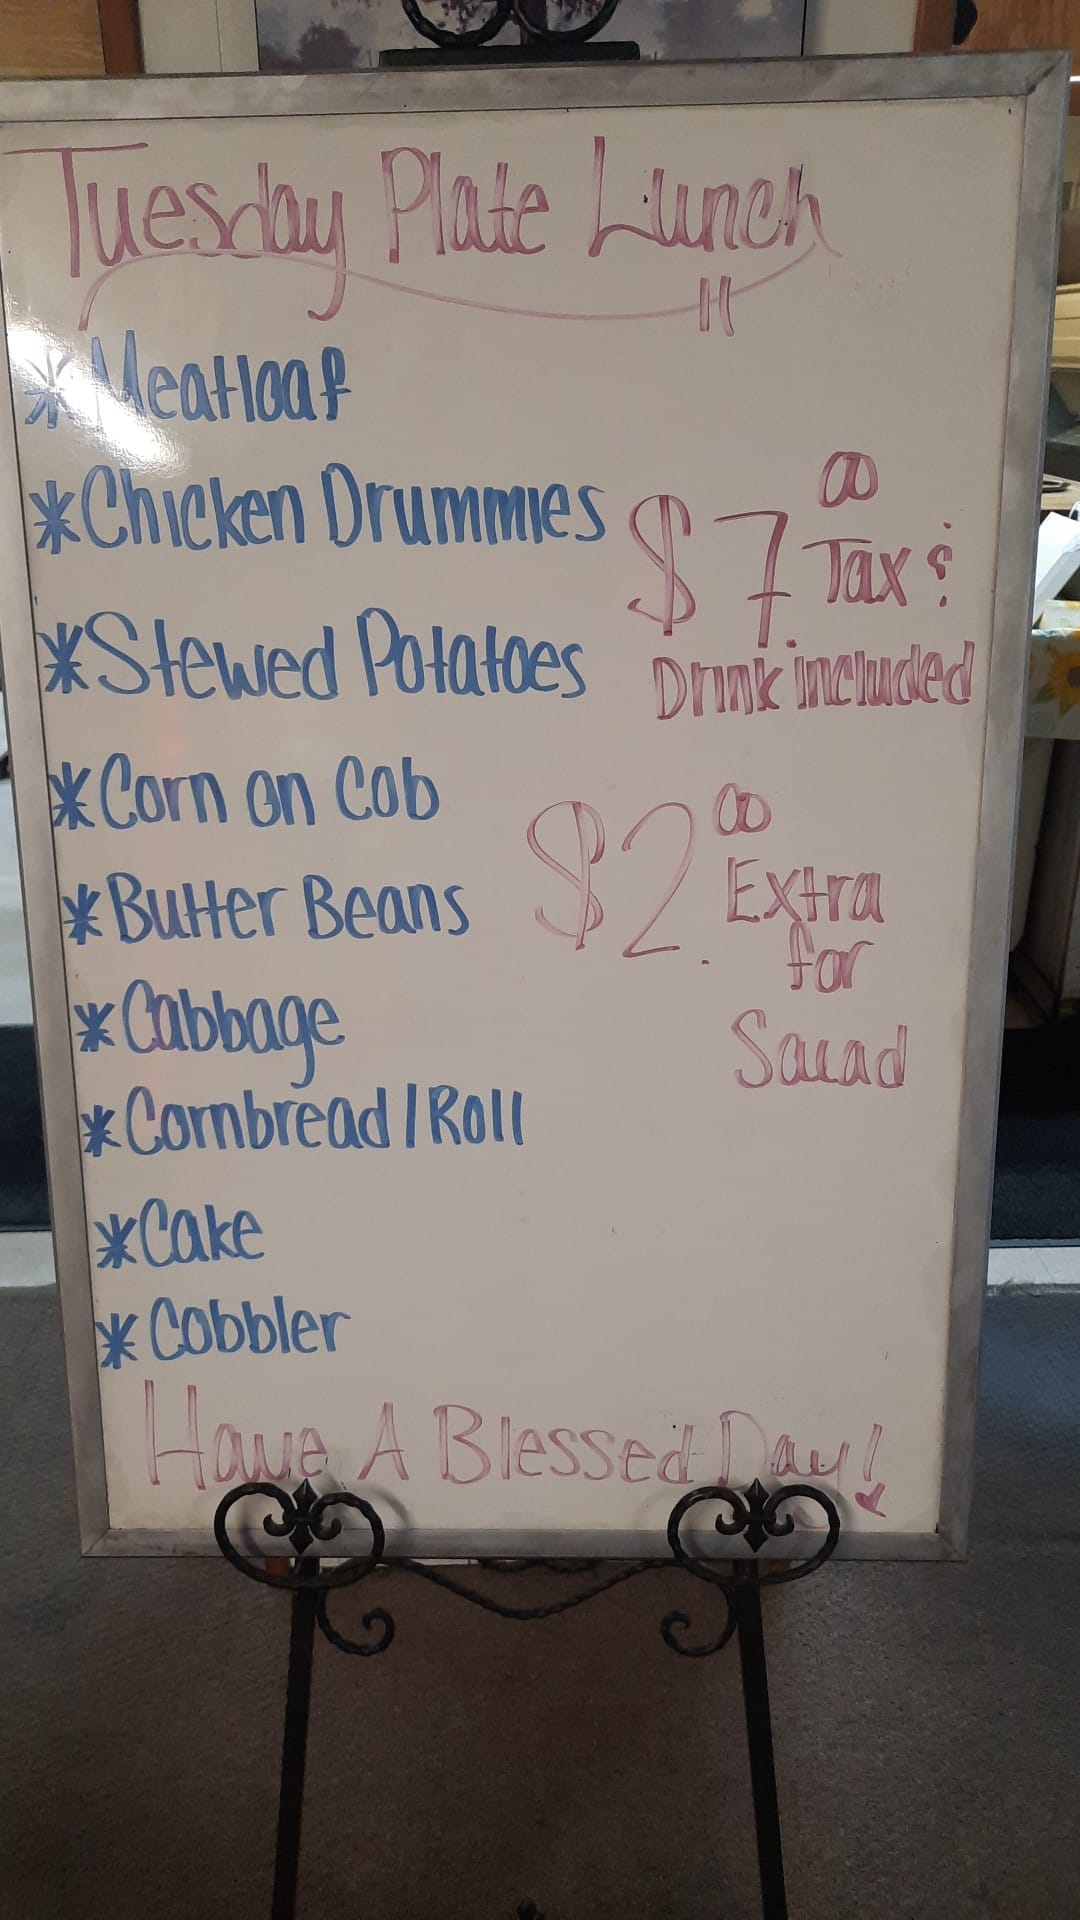 Tuesday Plate Lunch
* Meatloaf
* Chicken Drummies
* Stewed Potatoes
* Corn on Cob
* Butter Beans
* Cabbage
* Cornbread / Roll
* Cake
* Cobbler
$7.00 Tax &
Drink included
$2.00 Extra
for
Salad
Have A Blessed Day!